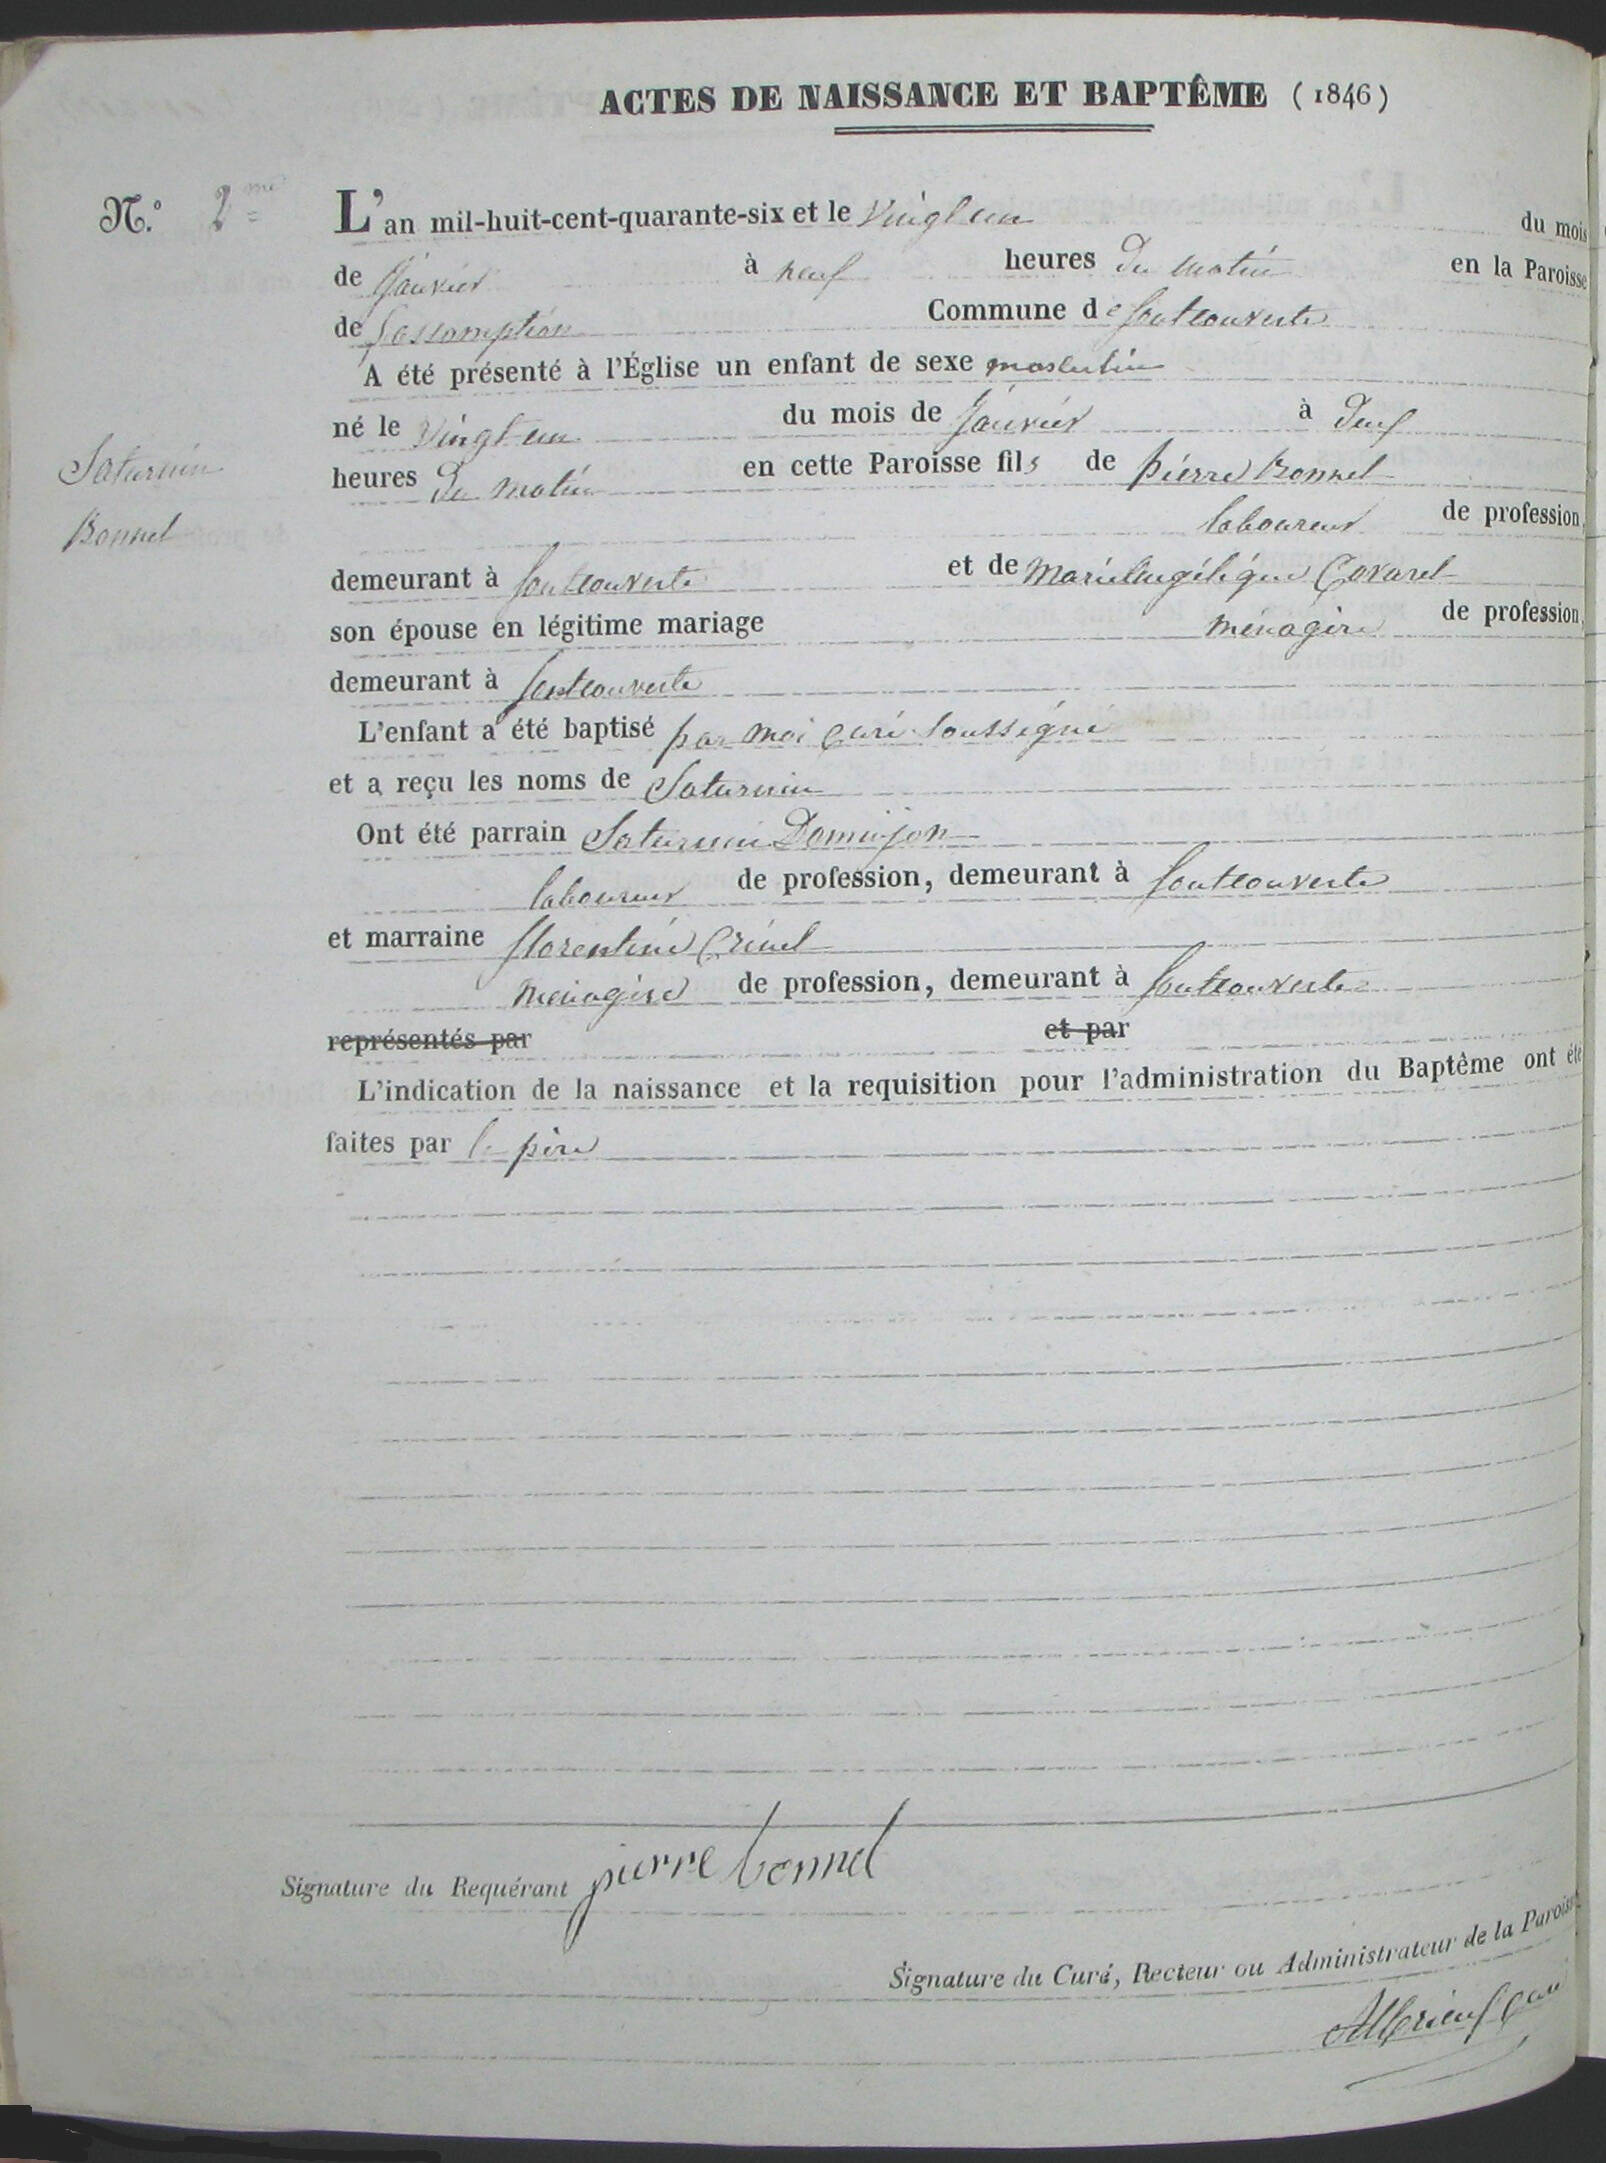 ACTES DE NAISSANCE ET BAPTÊME (1846)
N.º 2me
L'an mil-huit-cent-quarante-six et le vingt un du mois
de Janvier à neuf heures du matin en la Paroisse
de l'assomption Commune de fontcouverte
A été présenté à l'Église un enfant de sexe masculin
né le vingt un du mois de Janvier à
heures du matin en cette Paroisse fils de pierre Bonnel
laboureur de profession,
Saturnin
Bonnel
demeurant à fontcouverte et de Marie Angélique Covarel
son épouse en légitime mariage ménagère de profession,
demeurant à fontcouverte
L'enfant a été baptisé par moi curé soussigné
et a reçu les noms de Saturnin
Ont été parrain Saturnin Domenjon
laboureur de profession, demeurant à fontcouverte
et marraine florentine
ménagère de profession, demeurant à fontcouverte
représentés par et par
L'indication de la naissance et la requisition pour l'administration du Baptême ont été
faites par le père
Signature du Requérant pierre bonnel
Signature du Curé, Recteur ou Administrateur de la Paroisse